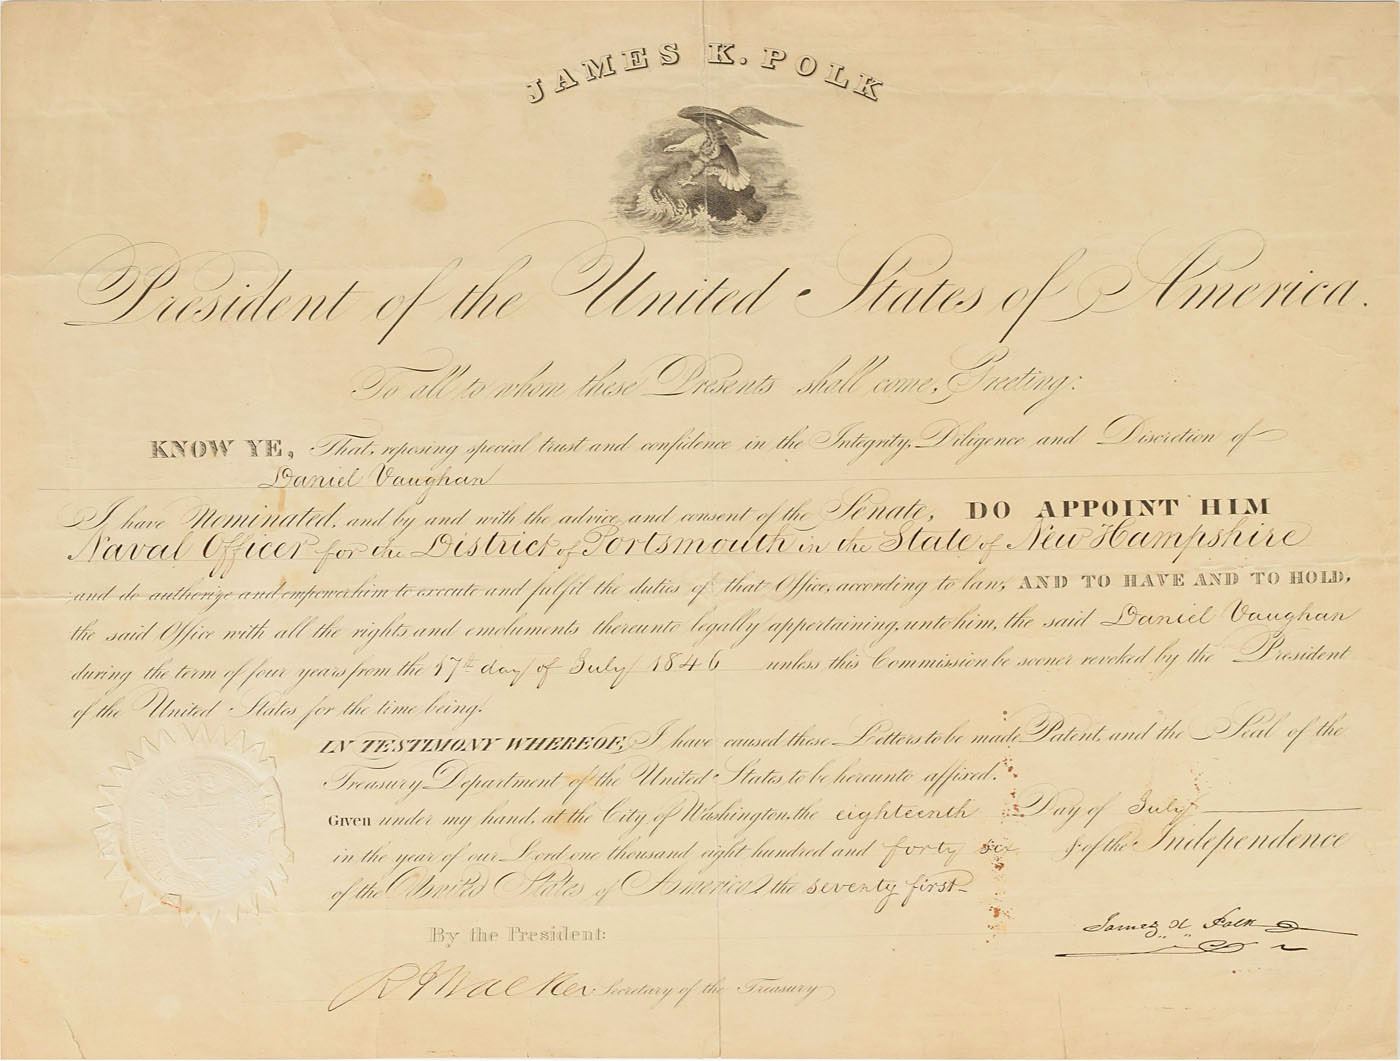 JAMES K. POLK
President of the United States of America.
To all to whom these Presents shall come, Greeting:
KNOW YE, That, reposing special trust and confidence in the Integrity, Diligence and Discretion of
Daniel Vaughan
I have Nominated, and by and with the advice and consent of the Senate, DO APPOINT HIM
Naval Officer for the District of Portsmouth in the State of New Hampshire
and do authorize and empower him to execute and fulfil the duties of that Office, according to law, AND TO HAVE AND TO HOLD,
the said Office with all the rights and emoluments thereunto legally appertaining, unto him, the said Daniel Vaughan
during the term of four years from the 17th day of July 1846 unless this Commission be sooner revoked by the President
of the United States for the time being.
IN TESTIMONY WHEREOF, I have caused these Letters to be made Patent, and the Seal of the
Treasury Department of the United States to be hereunto affixed.
Given under my hand, at the City of Washington, the eighteenth Day of July
in the year of our Lord one thousand eight hundred and forty six & of the Independence
of the United States of America, the seventy first
By the President:
James K Polk
R J Walker Secretary of the Treasury